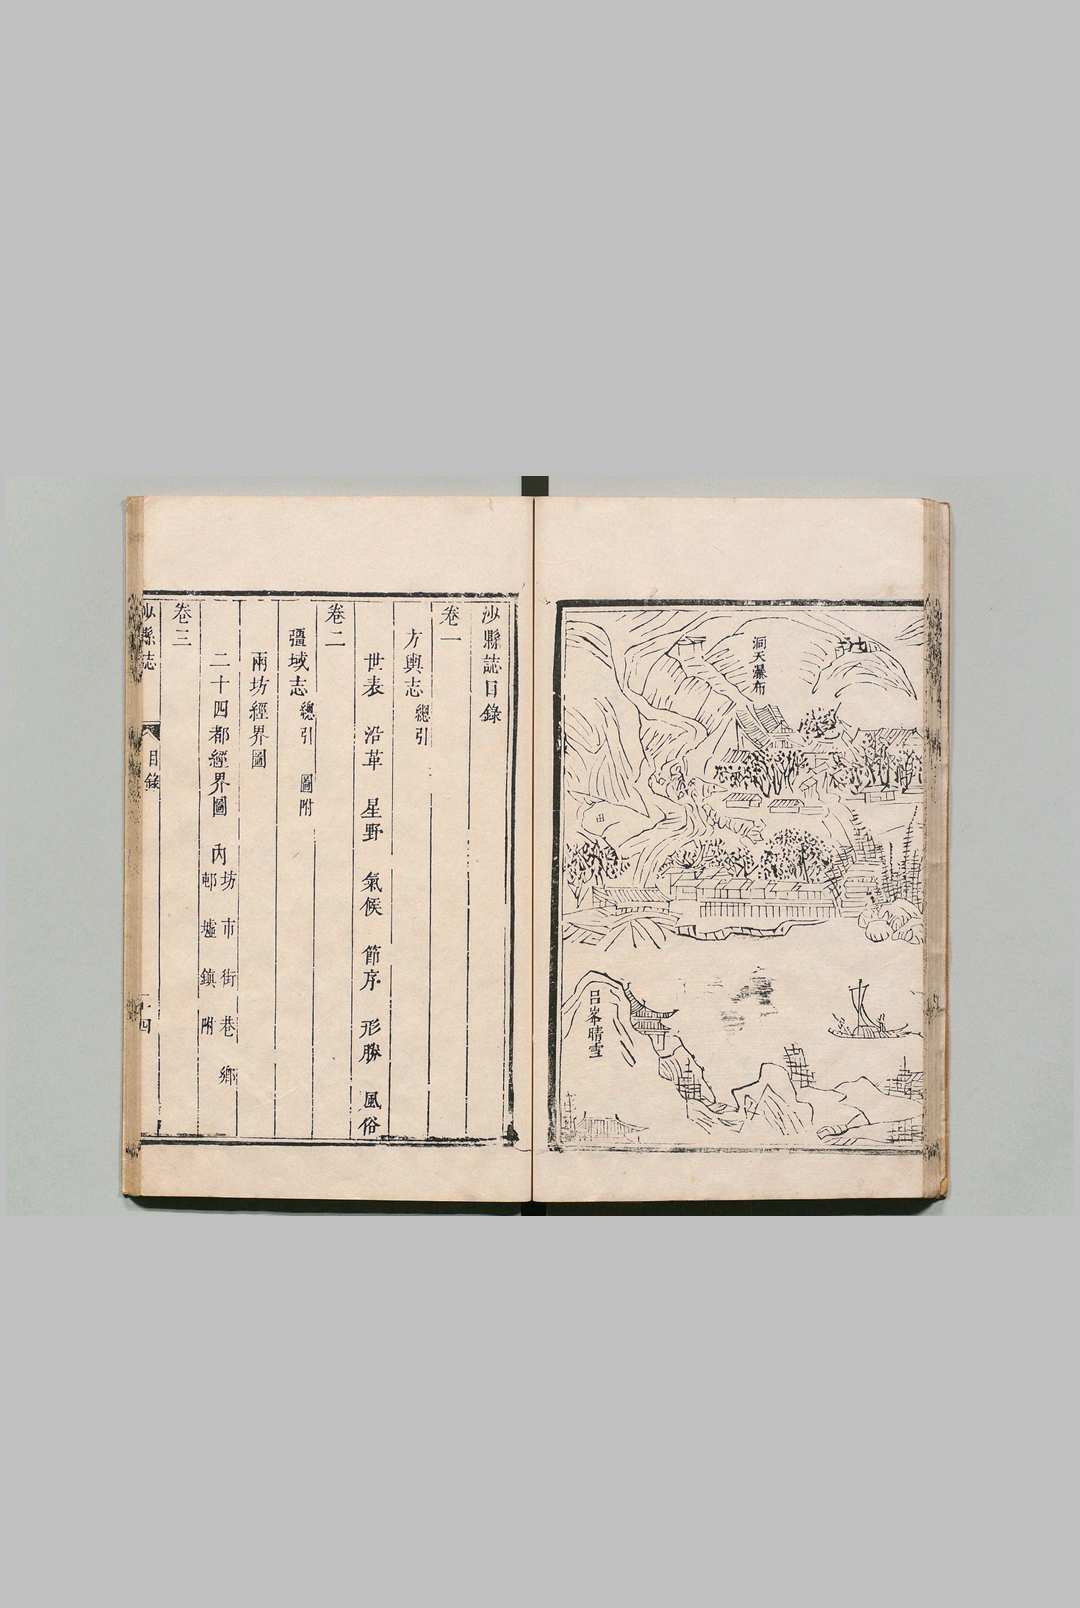 洞天瀑布
呂峯晴雪
沙縣誌目錄
卷一
方輿志 總引
世表 沿革 星野 氣候 節序 形勝 風俗
卷二
疆域志 總引 圖附
兩坊經界圖
二十四都經界圖 內坊市街巷鄉
邨墟鎮附
卷三
沙縣誌 目錄 十四